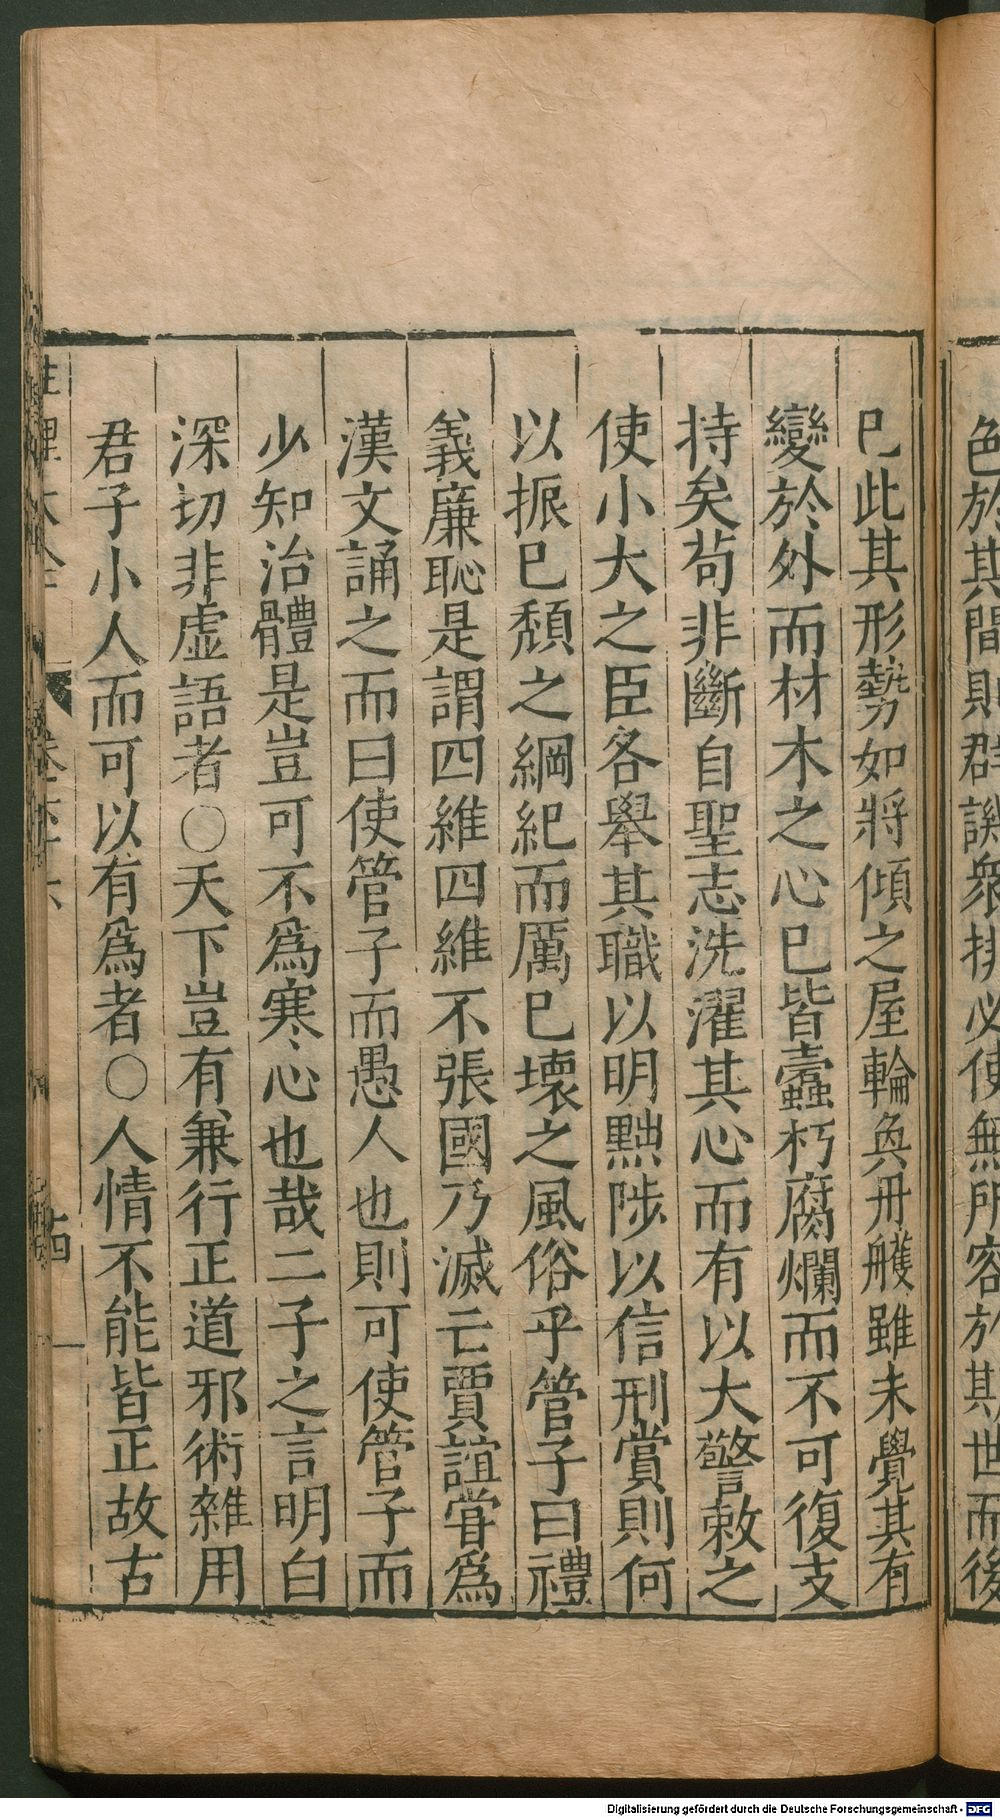 色於其間則群譏衆排必使無所容於其世而後
已此其形勢如將傾之屋輪奐丹雘雖未覺其有
變於外而材木之心已皆蠹朽腐爛而不可復支
持矣苟非斷自聖志洗濯其心而有以大警敕之
使小大之臣各舉其職以明黜陟以信刑賞則何
以振已頹之綱紀而厲已壞之風俗乎管子曰禮
義廉恥是謂四維四維不張國乃滅亡賈誼嘗爲
漢文誦之而曰使管子而愚人也則可使管子而
少知治體是豈可不爲寒心也哉二子之言明白
深切非虛語者○天下豈有兼行正道邪術雜用
君子小人而可以有爲者○人情不能皆正故古
性理大全 卷六十六 古四
Digitalisierung gefördert durch die Deutsche Forschungsgemeinschaft - DFG